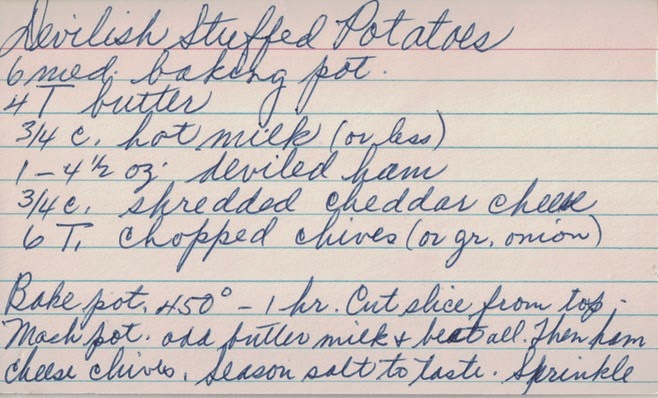 Devilish Stuffed Potatoes
6 med. baking pot.
4 T butter
3/4 c. hot milk (or less)
1 - 4 1/2 oz. deviled ham
3/4 c. shredded cheddar cheese
6 T. chopped chives (or gr. onion)
Bake pot. 450° - 1 hr. Cut slice from top.
Mash pot. add butter milk & beat all. Then ham
cheese chives. Season salt to taste. Sprinkle